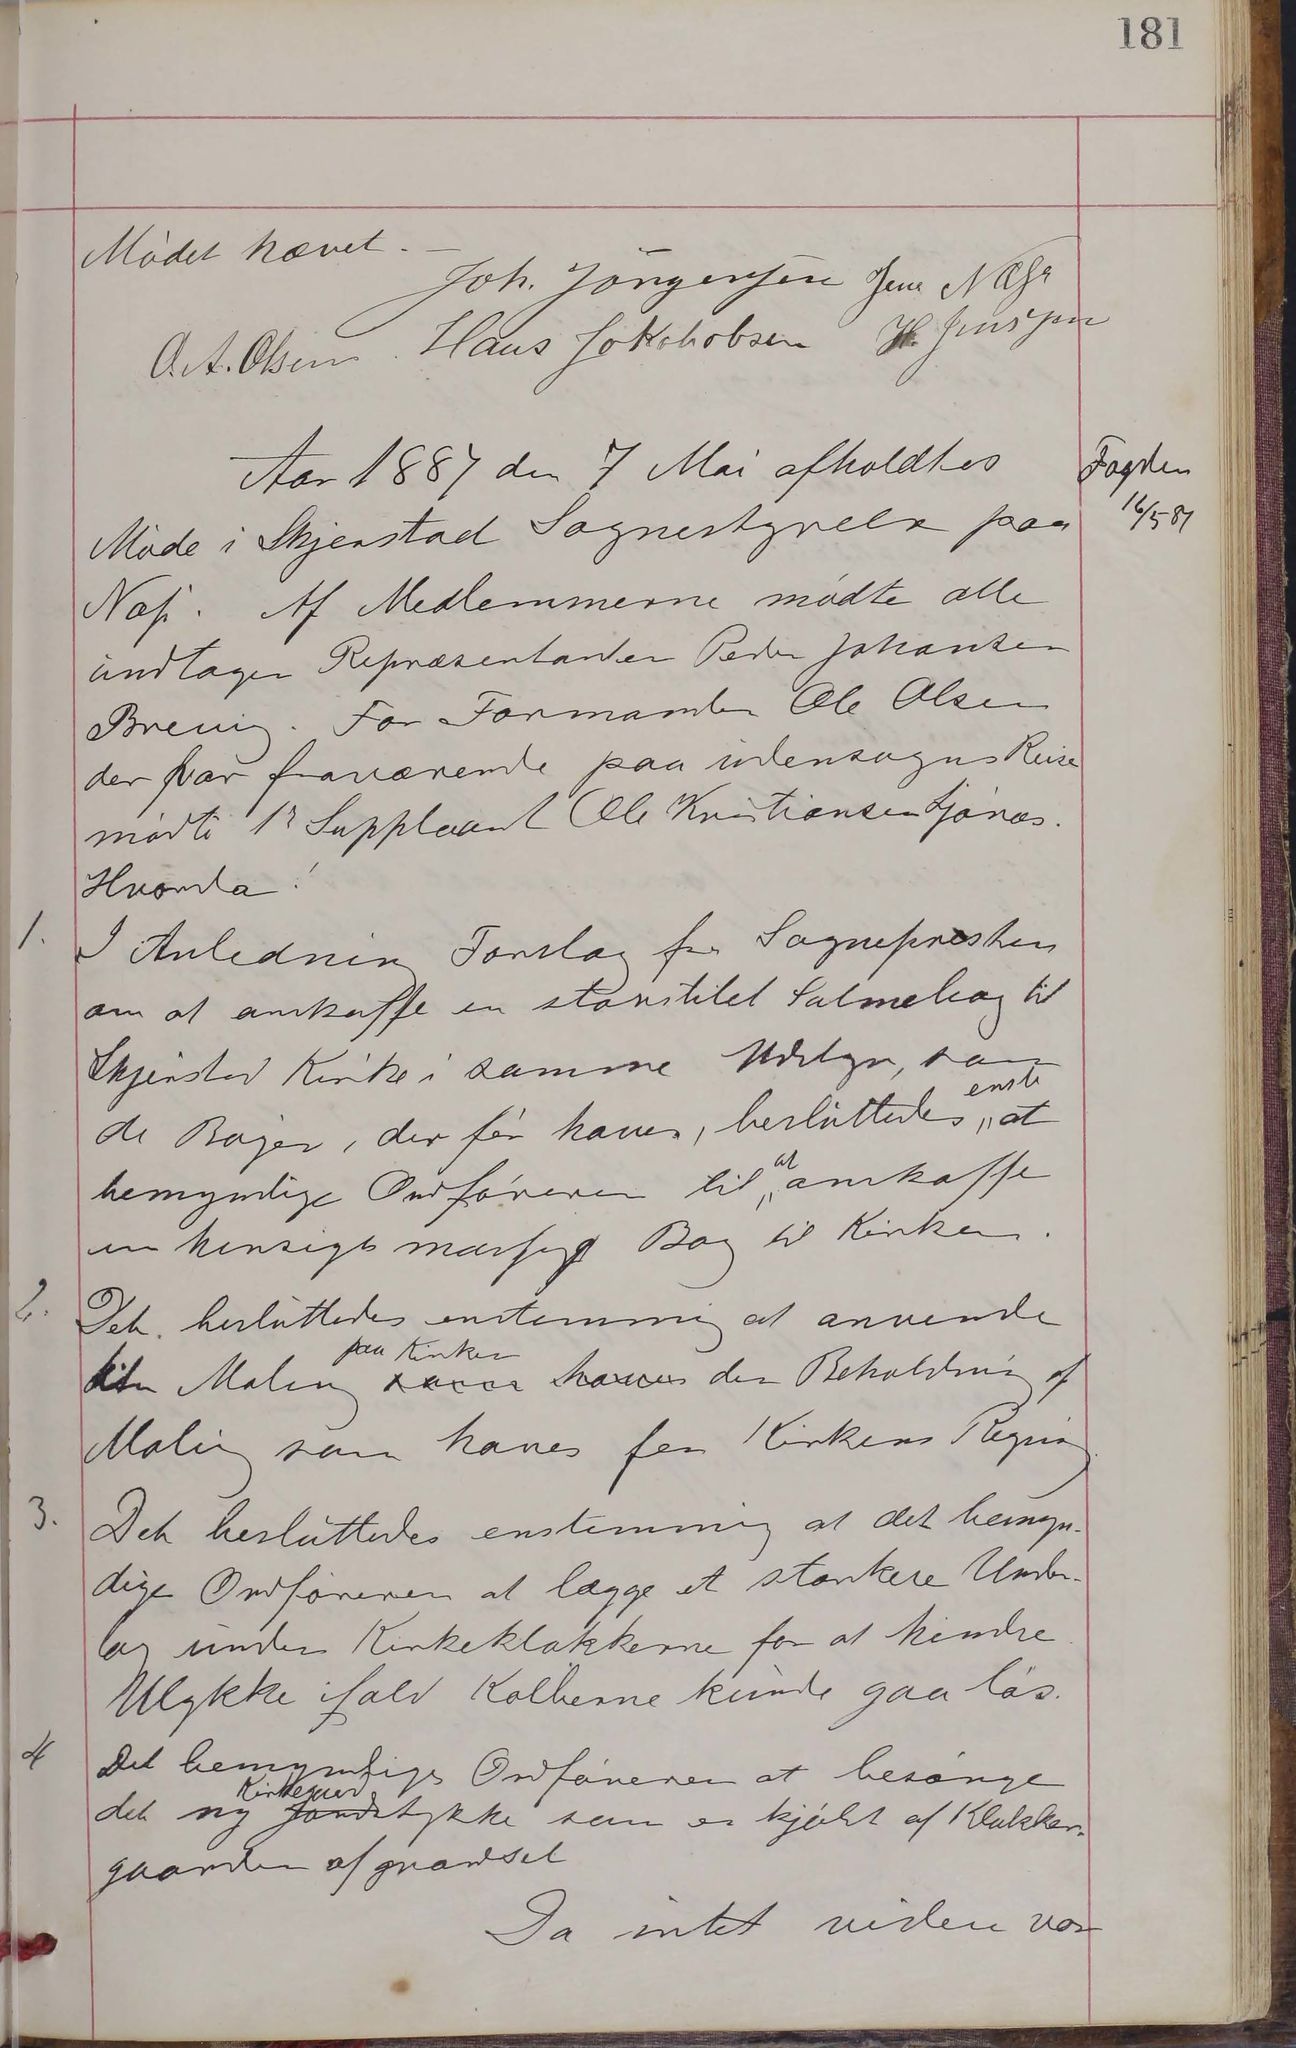 181
Mödet hævet. —
Joh. Jörgensen Jens Næss
O. A. Olsen. Hans Jokohobsen H. Jensen
Aar 1887 den 7 Mai afholdtes
Fogden
16/5 87
Möde i Skjerstad Sognestyrelse paa
Næs. Af Medlemmerne mödte alle
undtagen Repræsentanten Peder Johansen
Breivig. For Formanden Ole Olsen
der var fraværende paa udensogns Reise
mödte 1ste Suppleant Ole Kristiansen Ljönes.
Hvorda:
1. I Anledning Forslag fra Sognepresten
om at anskaffe en storstilet Salmebog til
Skjerstad Kirke i samme Udstyr, som
de Böger, der för haves, besluttedes enst. at
bemyndige Ordföreren til at anskaffe
en hensigtsmæssig Bog til Kirken.
2. Det besluttedes enstemmig at anvende
til Maling paa Kirken som haves den Beholdning af
Maling som haves for Kirkens Regning.
3. Det besluttedes enstemmig at det bemyn-
dige Ordföreren at lægge et sterkere Under-
lag under Kirkeklokkerne for at hindre
Ulykke ifald Kolberne kunde gaa lös.
4 Det bemyndiges Ordföreren at besörge
det ny Kirkegaards Jordstykke som er kjöbt af Klokker-
gaarden afgrændset
Da intet videre var